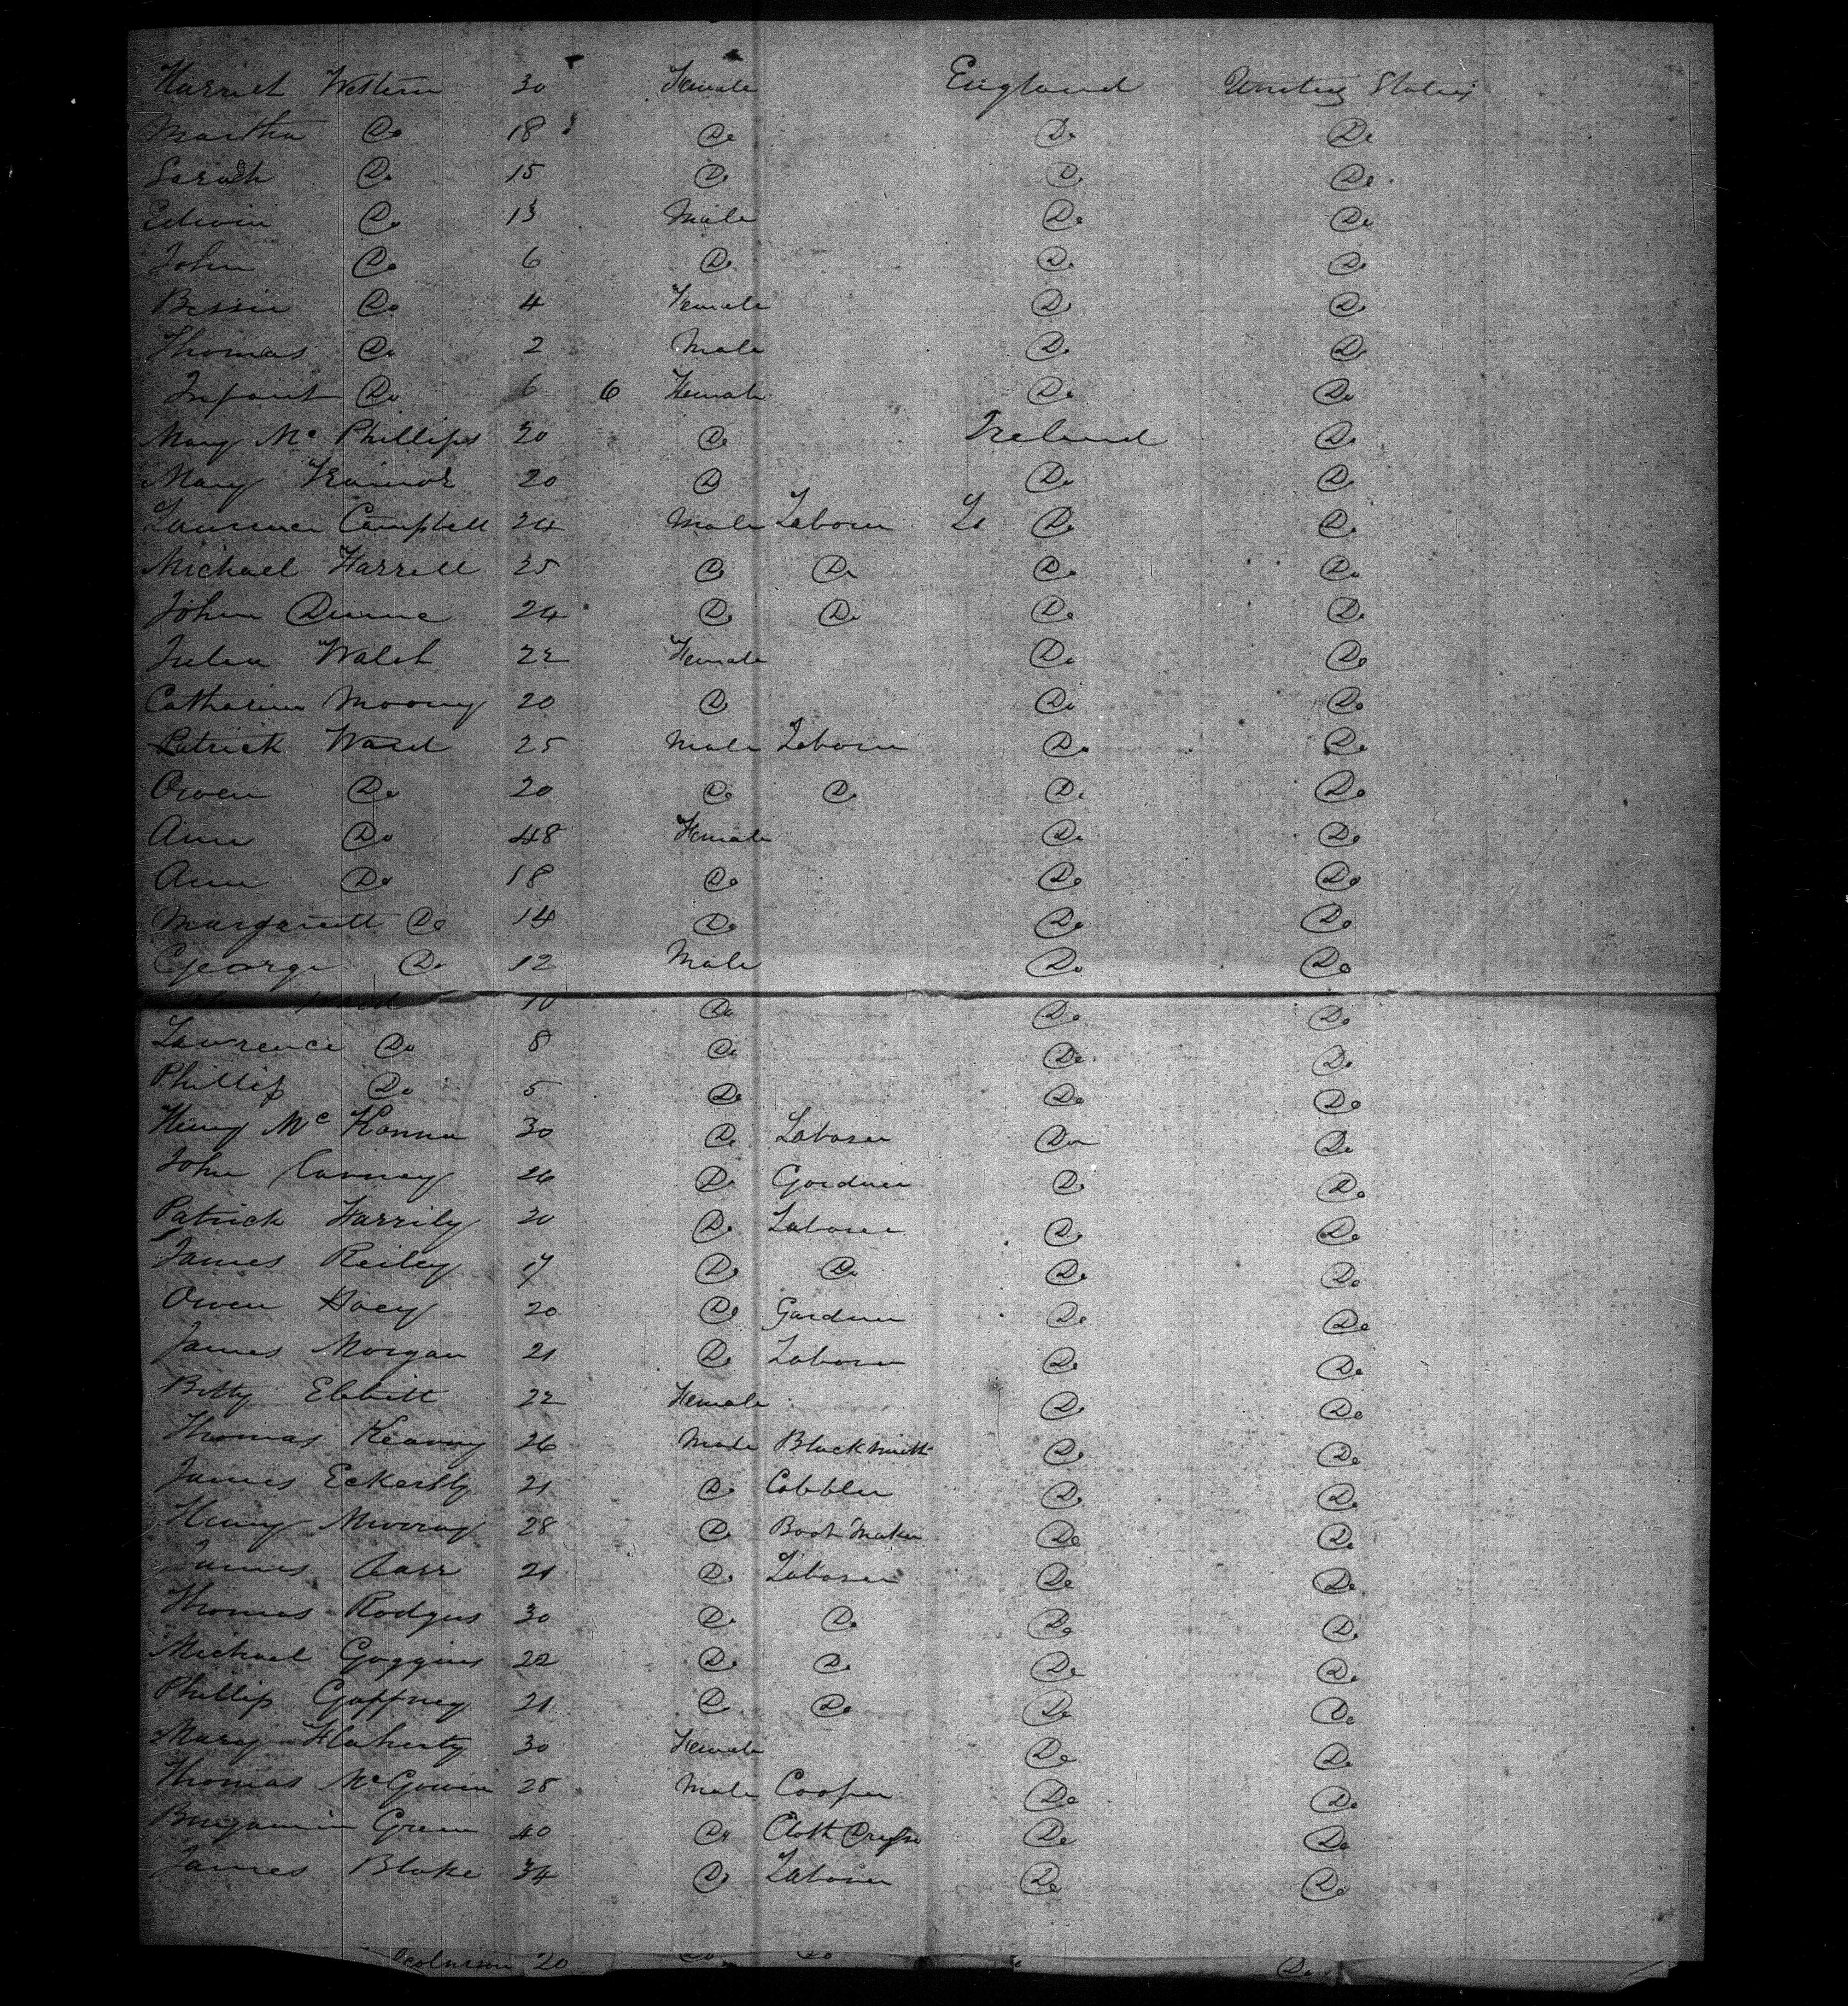 Harriet Western 30 Female England United States
Martha Do 18 Do Do Do
Sarah Do 15 Do Do Do
Edwin Do 13 Male Do Do
John Do 6 Do Do Do
Bessie Do 4 Female Do Do
Thomas Do 2 Male Do Do
Infant Do 6 6 Female Do Do
Mary Mc Phillips 20 Do Ireland Do
Mary Trainor 20 Do Do Do
Lawrence Campbell 24 Male Laborer Do Do
Michael Farrell 25 Do Do Do Do
John Dunne 24 Do Do Do Do
Julia Walsh 22 Female Do Do
Catharine Moony 20 Do Do Do
Patrick Ward 25 Male Laborer Do Do
Owen Do 20 Do Do Do Do
Ann Do 48 Female Do Do
Ann Do 18 Do Do Do
Margarett Do 14 Do Do Do
George Do 12 Male Do Do
Ward 10 Do Do Do
Lawrence Do 8 Do Do Do
Phillip Do 5 Do Do Do
Henry Mc Kanna 30 Do Laborer Do Do
John Carney 26 Do Gardner Do Do
Patrick Farrily 20 Do Laborer Do Do
James Reiley 17 Do Do Do Do
Owen Hoey 20 Do Gardner Do Do
James Morgan 21 Do Laborer Do Do
Betty Ebbitt 22 Female Do Do
Thomas Kearny 26 Male Blacksmith Do Do
James Eckersly 21 Do Cobbler Do Do
Henry Murray 28 Do Boot Maker Do Do
James Carr 21 Do Laborer Do Do
Thomas Rodgers 30 Do Do Do Do
Michael Goggins 22 Do Do Do Do
Phillip Gaffney 21 Do Do Do Do
Mary Flaherty 30 Female Do Do
Thomas McGowin 28 Male Cooper Do Do
Benjamin Green 40 Do Cloth Dresser Do Do
James Blake 34 Do Laborer Do Do
20 Do Do Do